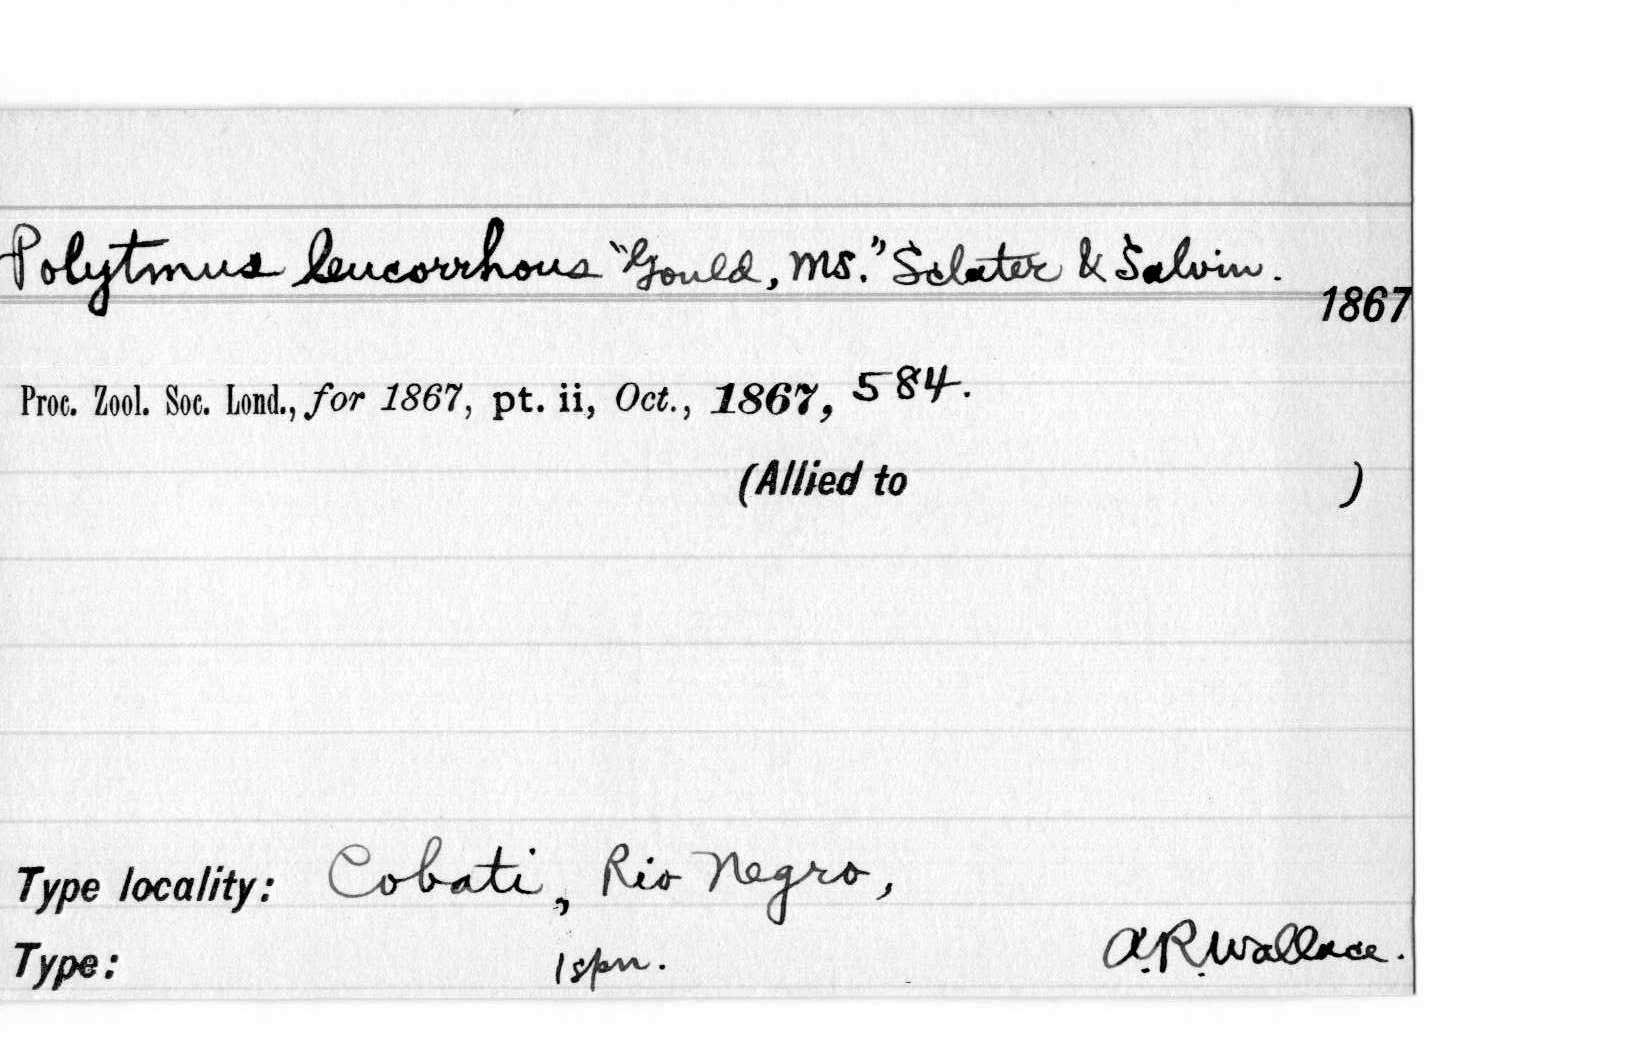 Polytmus leucorrhous "Gould, MS." Sclater & Salvin.
1867
Proc. Zool. Soc. Lond., for 1867, pt. ii, Oct., 1867, 584.
(Allied to )
Type locality: Cobati, Rio Negro,
Type: 1 spn. A.R. Wallace.